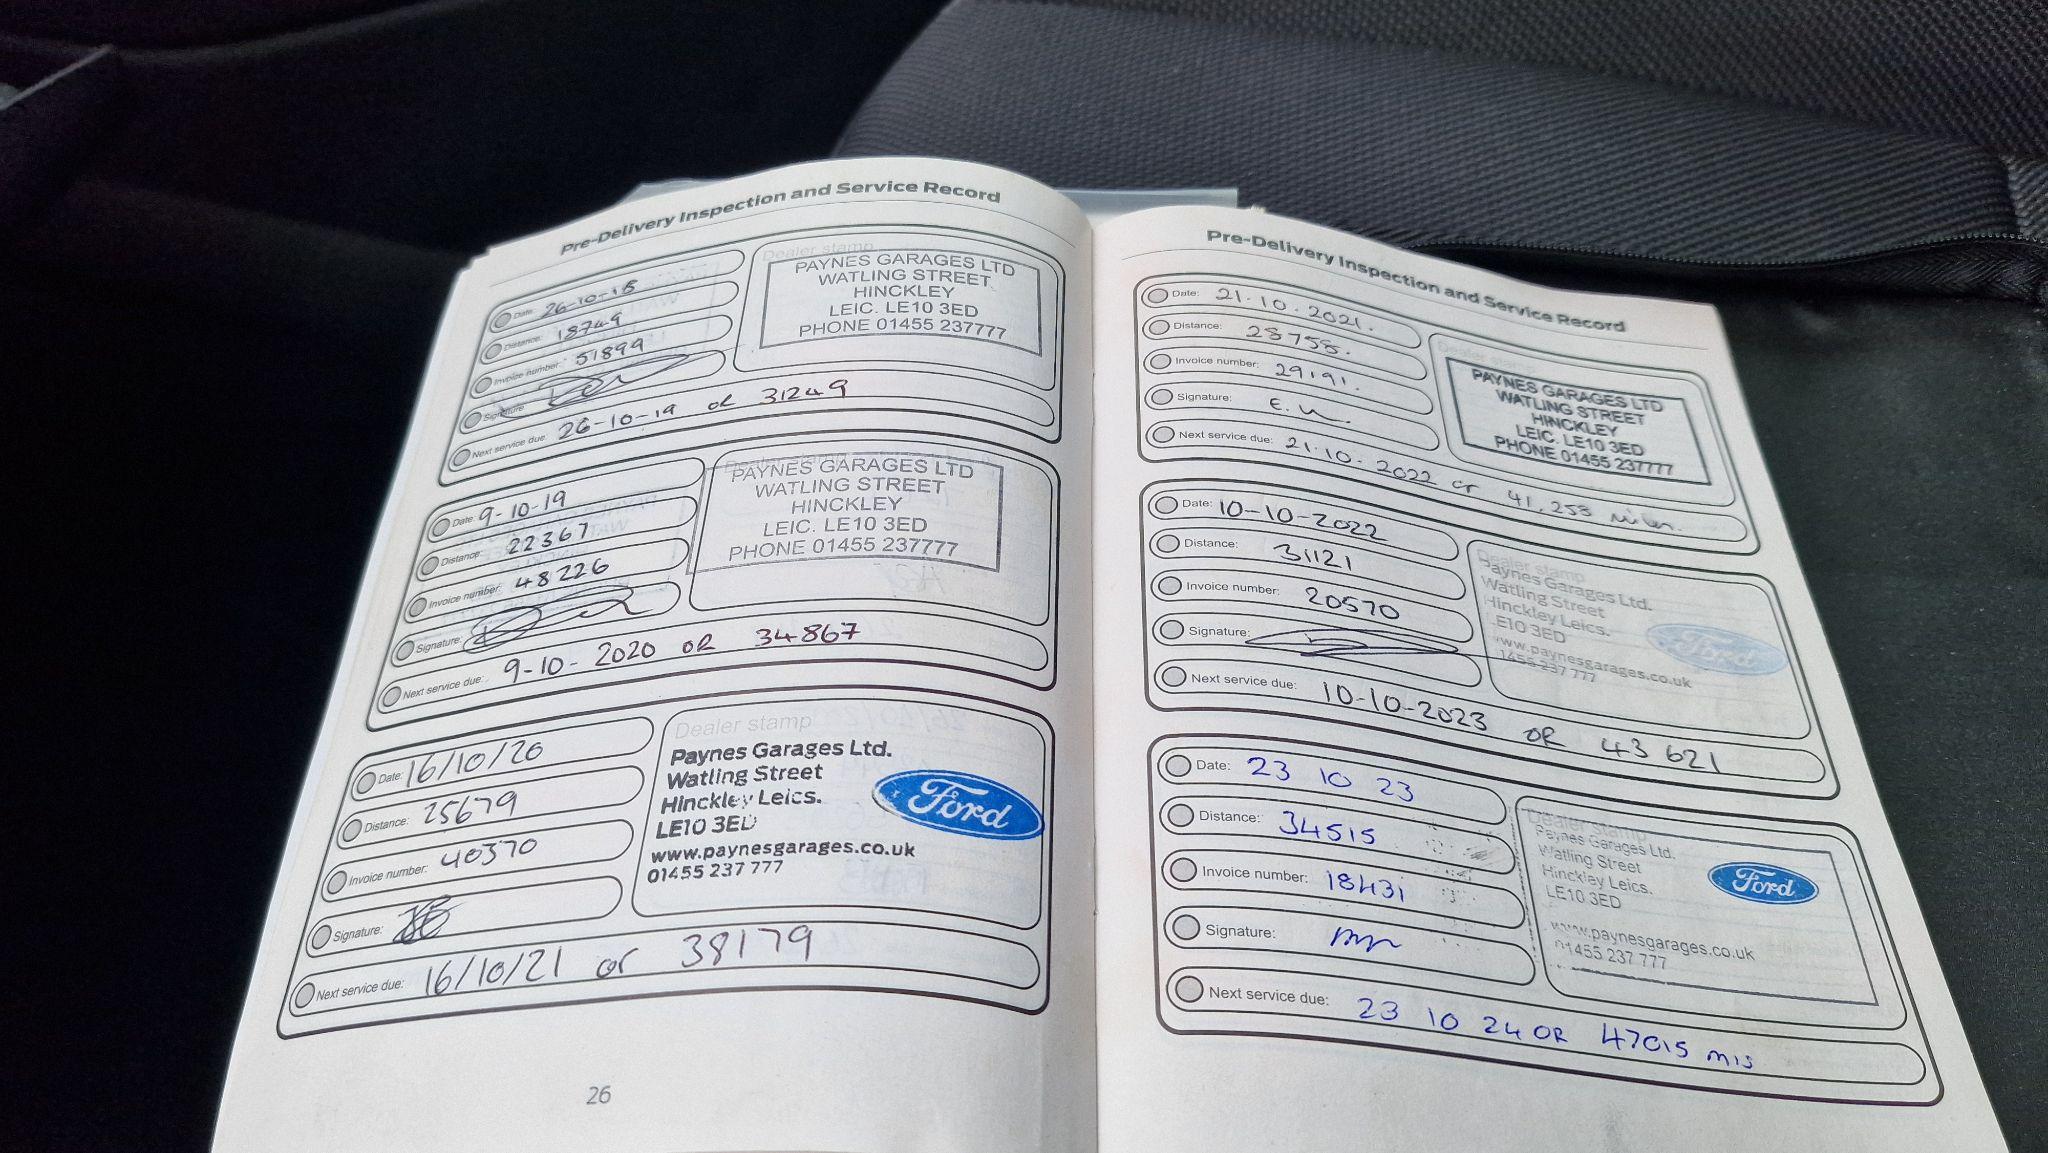 Pre-Delivery Inspection and Service Record
Dealer stamp
Date: 26-10-18
Distance: 18749
Invoice number: 51899
Signature
Next service due: 26-10-19 OR 31249
PAYNES GARAGES LTD
WATLING STREET
HINCKLEY
LEIC. LE10 3ED
PHONE 01455 237777
Date: 9-10-19
Distance: 22367
Invoice number: 48226
Signature:
Next service due: 9-10-2020 OR 34867
Dealer stamp
PAYNES GARAGES LTD
WATLING STREET
HINCKLEY
LEIC. LE10 3ED
PHONE 01455 237777
Date: 16/10/20
Distance: 25679
Invoice number: 40370
Signature:
Next service due: 16/10/21 or 38179
Dealer stamp
Paynes Garages Ltd.
Watling Street
Hinckley Leics.
LE10 3ED
www.paynesgarages.co.uk
01455 237 777
Ford
26
Pre-Delivery Inspection and Service Record
Date: 21.10.2021.
Distance: 28758.
Invoice number: 29191.
Signature:
Next service due: 21.10.2022 or 41,253 miles.
Dealer stamp
PAYNES GARAGES LTD
WATLING STREET
HINCKLEY
LEIC. LE10 3ED
PHONE 01455 237777
Date: 10-10-2022
Distance: 31121
Invoice number: 20570
Signature:
Next service due: 10-10-2023 OR 43621
Dealer stamp
Paynes Garages Ltd.
Watling Street
Hinckley Leics.
LE10 3ED
www.paynesgarages.co.uk
01455 237 777
Ford
Date: 23 10 23
Distance: 34515
Invoice number: 18431
Signature:
Next service due: 23 10 24 OR 47015 mls
Dealer stamp
Paynes Garages Ltd.
Watling Street
Hinckley Leics.
LE10 3ED
www.paynesgarages.co.uk
01455 237 777
Ford